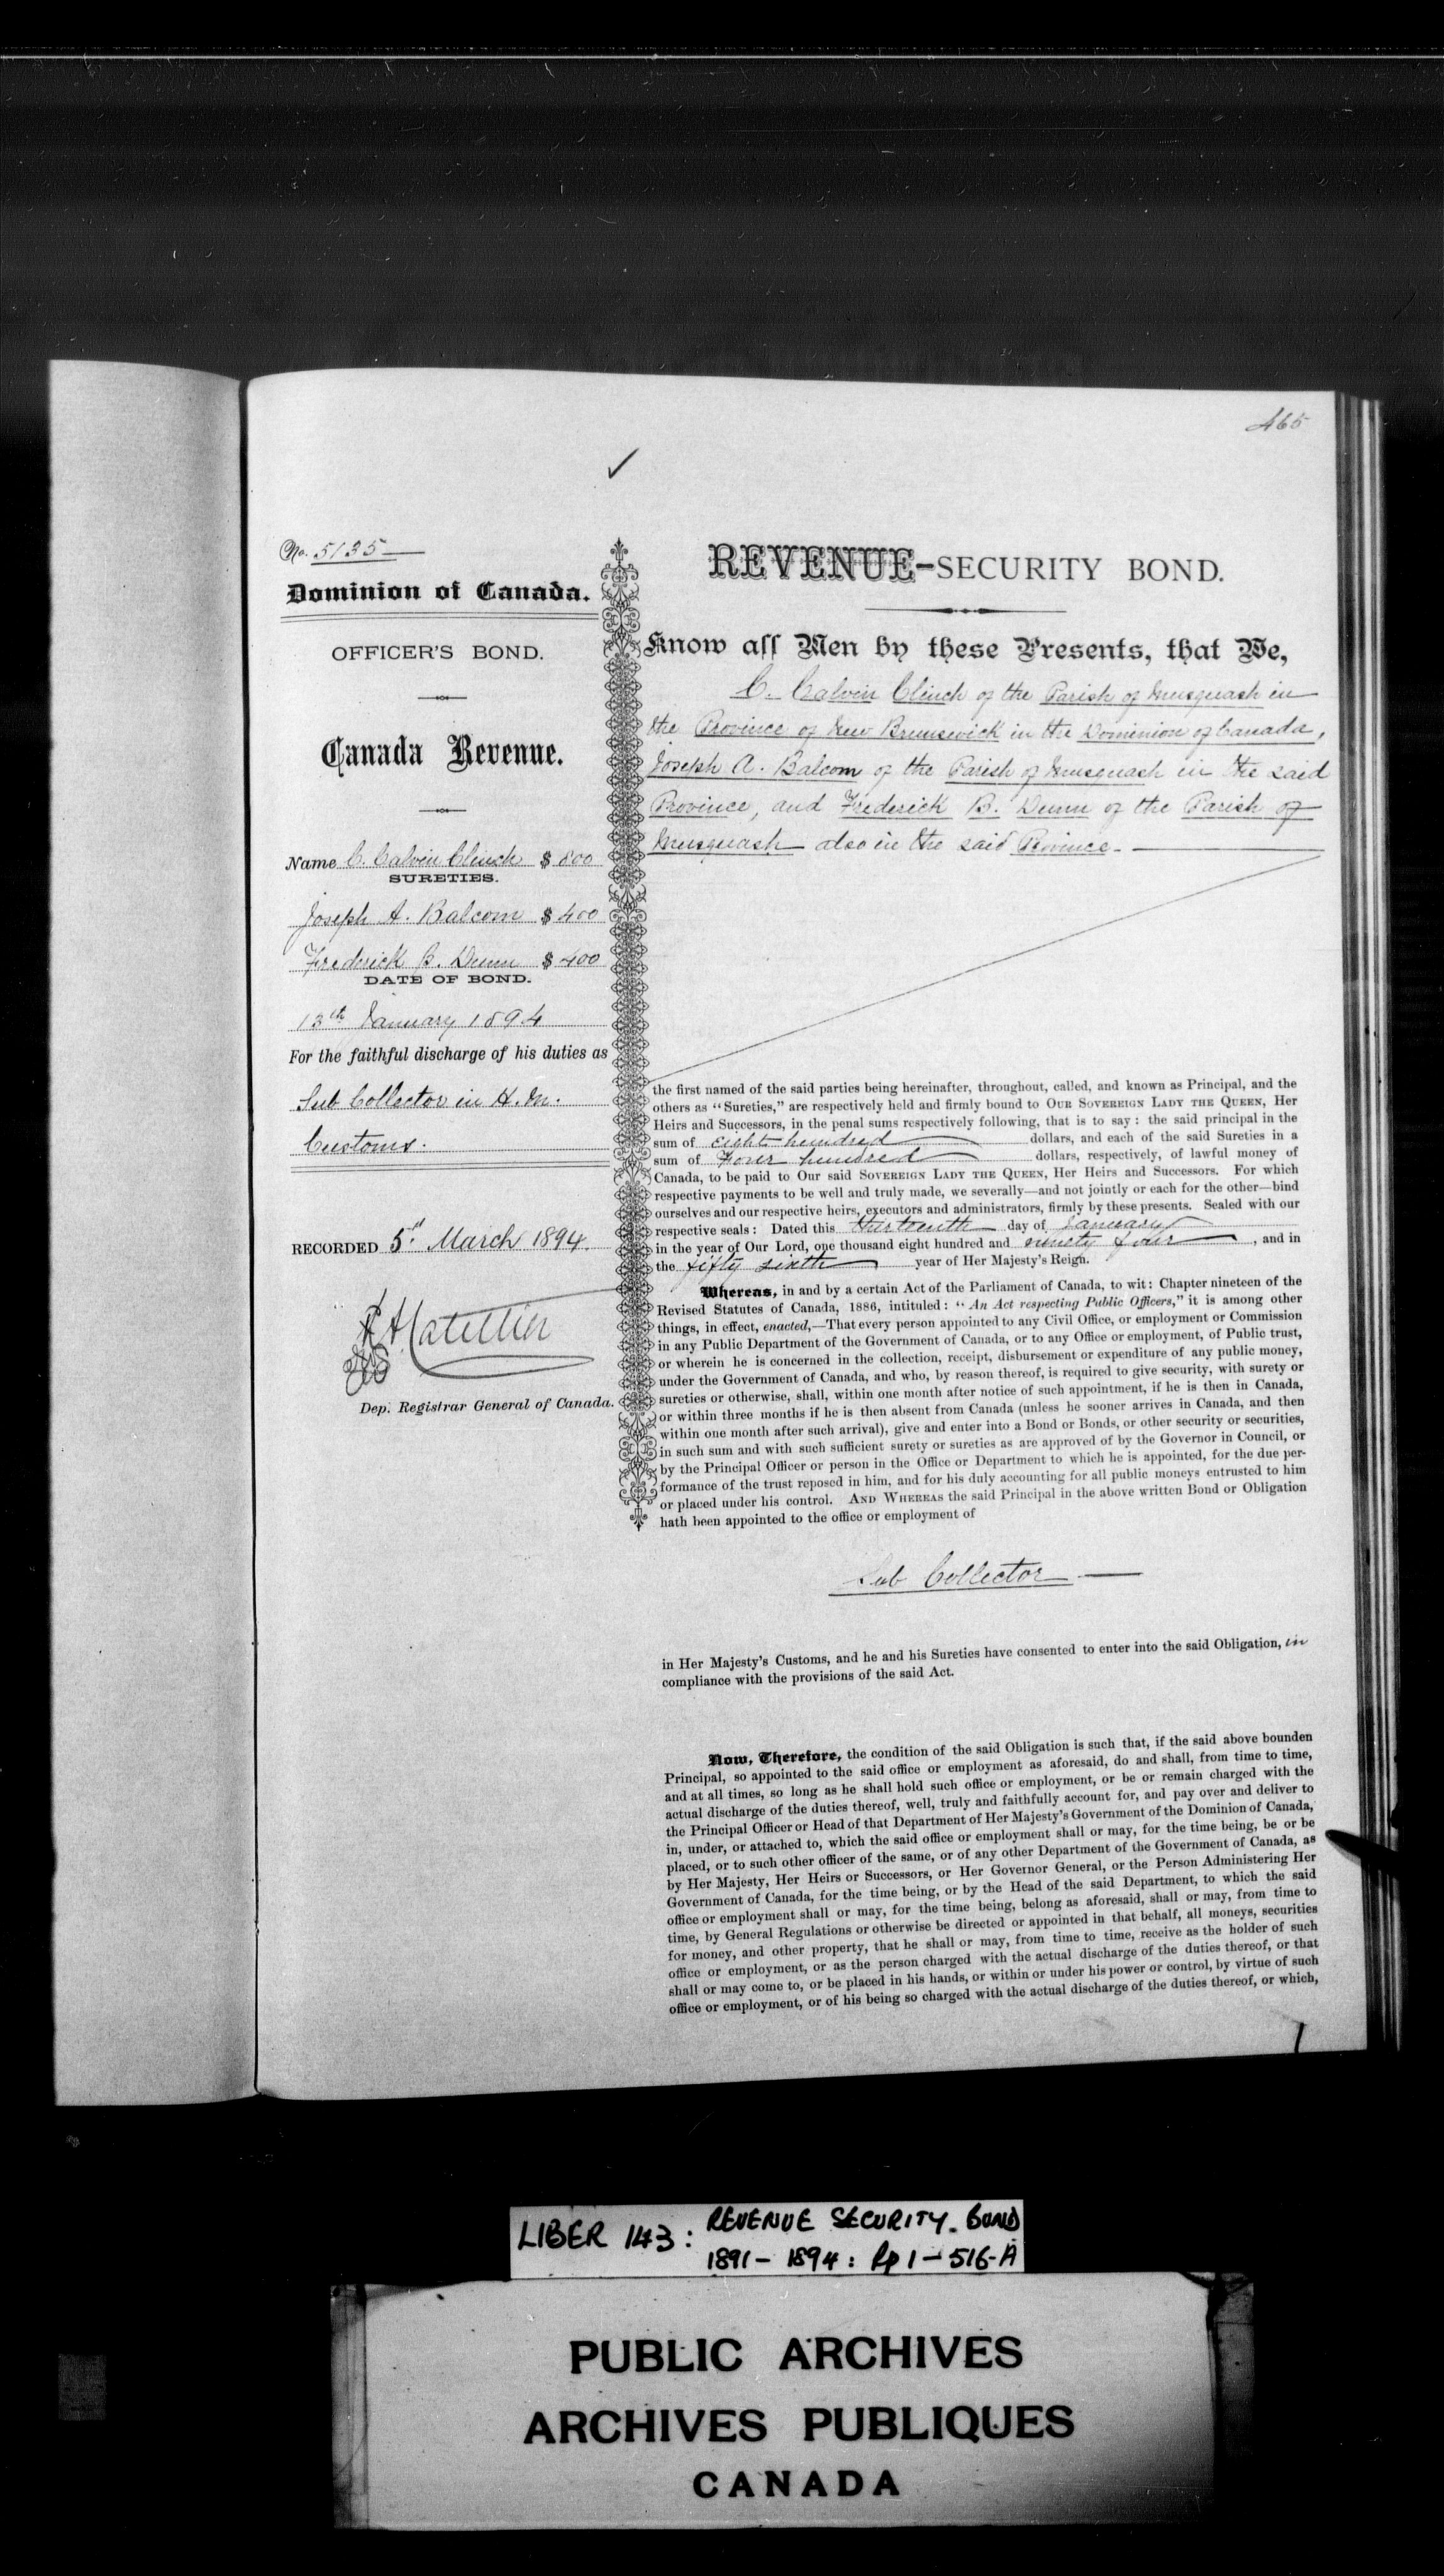 465
✓
No. 5135
Dominion of Canada.
OFFICER'S BOND.
Canada Revenue.
Name C. Calvin Clinch $ 800
SURETIES.
Joseph A. Balcom $ 400
Frederick B. Dunn $ 400
DATE OF BOND.
13th January 1894
For the faithful discharge of his duties as
Sub Collector in H. M.
Customs.
RECORDED 5th March 1894.
Dep. Registrar General of Canada.
REVENUE-SECURITY BOND.
Know all Men by these Presents, that We,
C. Calvin Clinch of the Parish of Musquash in
the Province of New Brunswick in the Dominion of Canada,
Joseph A. Balcom of the Parish of Musquash in the said
Province, and Frederick B. Dunn of the Parish of
Musquash also in the said Province.
the first named of the said parties being hereinafter, throughout, called, and known as Principal, and the
others as "Sureties," are respectively held and firmly bound to OUR SOVEREIGN LADY THE QUEEN, Her
Heirs and Successors, in the penal sums respectively following, that is to say: the said principal in the
sum of eight hundred dollars, and each of the said Sureties in a
sum of Four hundred dollars, respectively, of lawful money of
Canada, to be paid to Our said SOVEREIGN LADY THE QUEEN, Her Heirs and Successors. For which
respective payments to be well and truly made, we severally—and not jointly or each for the other—bind
ourselves and our respective heirs, executors and administrators, firmly by these presents. Sealed with our
respective seals: Dated this thirteenth day of January
in the year of Our Lord, one thousand eight hundred and ninety four, and in
the fifty sixth year of Her Majesty's Reign.
Whereas, in and by a certain Act of the Parliament of Canada, to wit: Chapter nineteen of the
Revised Statutes of Canada, 1886, intituled: "An Act respecting Public Officers," it is among other
things, in effect, enacted,—That every person appointed to any Civil Office, or employment or Commission
in any Public Department of the Government of Canada, or to any Office or employment, of Public trust,
or wherein he is concerned in the collection, receipt, disbursement or expenditure of any public money,
under the Government of Canada, and who, by reason thereof, is required to give security, with surety or
sureties or otherwise, shall, within one month after notice of such appointment, if he is then in Canada,
or within three months if he is then absent from Canada (unless he sooner arrives in Canada, and then
within one month after such arrival), give and enter into a Bond or Bonds, or other security or securities,
in such sum and with such sufficient surety or sureties as are approved of by the Governor in Council, or
by the Principal Officer or person in the Office or Department to which he is appointed, for the due per-
formance of the trust reposed in him, and for his duly accounting for all public moneys entrusted to him
or placed under his control. AND WHEREAS the said Principal in the above written Bond or Obligation
hath been appointed to the office or employment of
Sub Collector
in Her Majesty's Customs, and he and his Sureties have consented to enter into the said Obligation, in
compliance with the provisions of the said Act.
Now, Therefore, the condition of the said Obligation is such that, if the said above bounden
Principal, so appointed to the said office or employment as aforesaid, do and shall, from time to time,
and at all times, so long as he shall hold such office or employment, or be or remain charged with the
actual discharge of the duties thereof, well, truly and faithfully account for, and pay over and deliver to
the Principal Officer or Head of that Department of Her Majesty's Government of the Dominion of Canada,
in, under, or attached to, which the said office or employment shall or may, for the time being, be or be
placed, or to such other officer of the same, or of any other Department of the Government of Canada, as
by Her Majesty, Her Heirs or Successors, or Her Governor General, or the Person Administering Her
Government of Canada, for the time being, or by the Head of the said Department, to which the said
office or employment shall or may, for the time being, belong as aforesaid, shall or may, from time to
time, by General Regulations or otherwise be directed or appointed in that behalf, all moneys, securities
for money, and other property, that he shall or may, from time to time, receive as the holder of such
office or employment, or as the person charged with the actual discharge of the duties thereof, or that
shall or may come to, or be placed in his hands, or within or under his power or control, by virtue of such
office or employment, or of his being so charged with the actual discharge of the duties thereof, or which,
LIBER 143: REVENUE SECURITY. BOND
1891 – 1894: Pp 1 – 516-A
PUBLIC ARCHIVES
ARCHIVES PUBLIQUES
CANADA